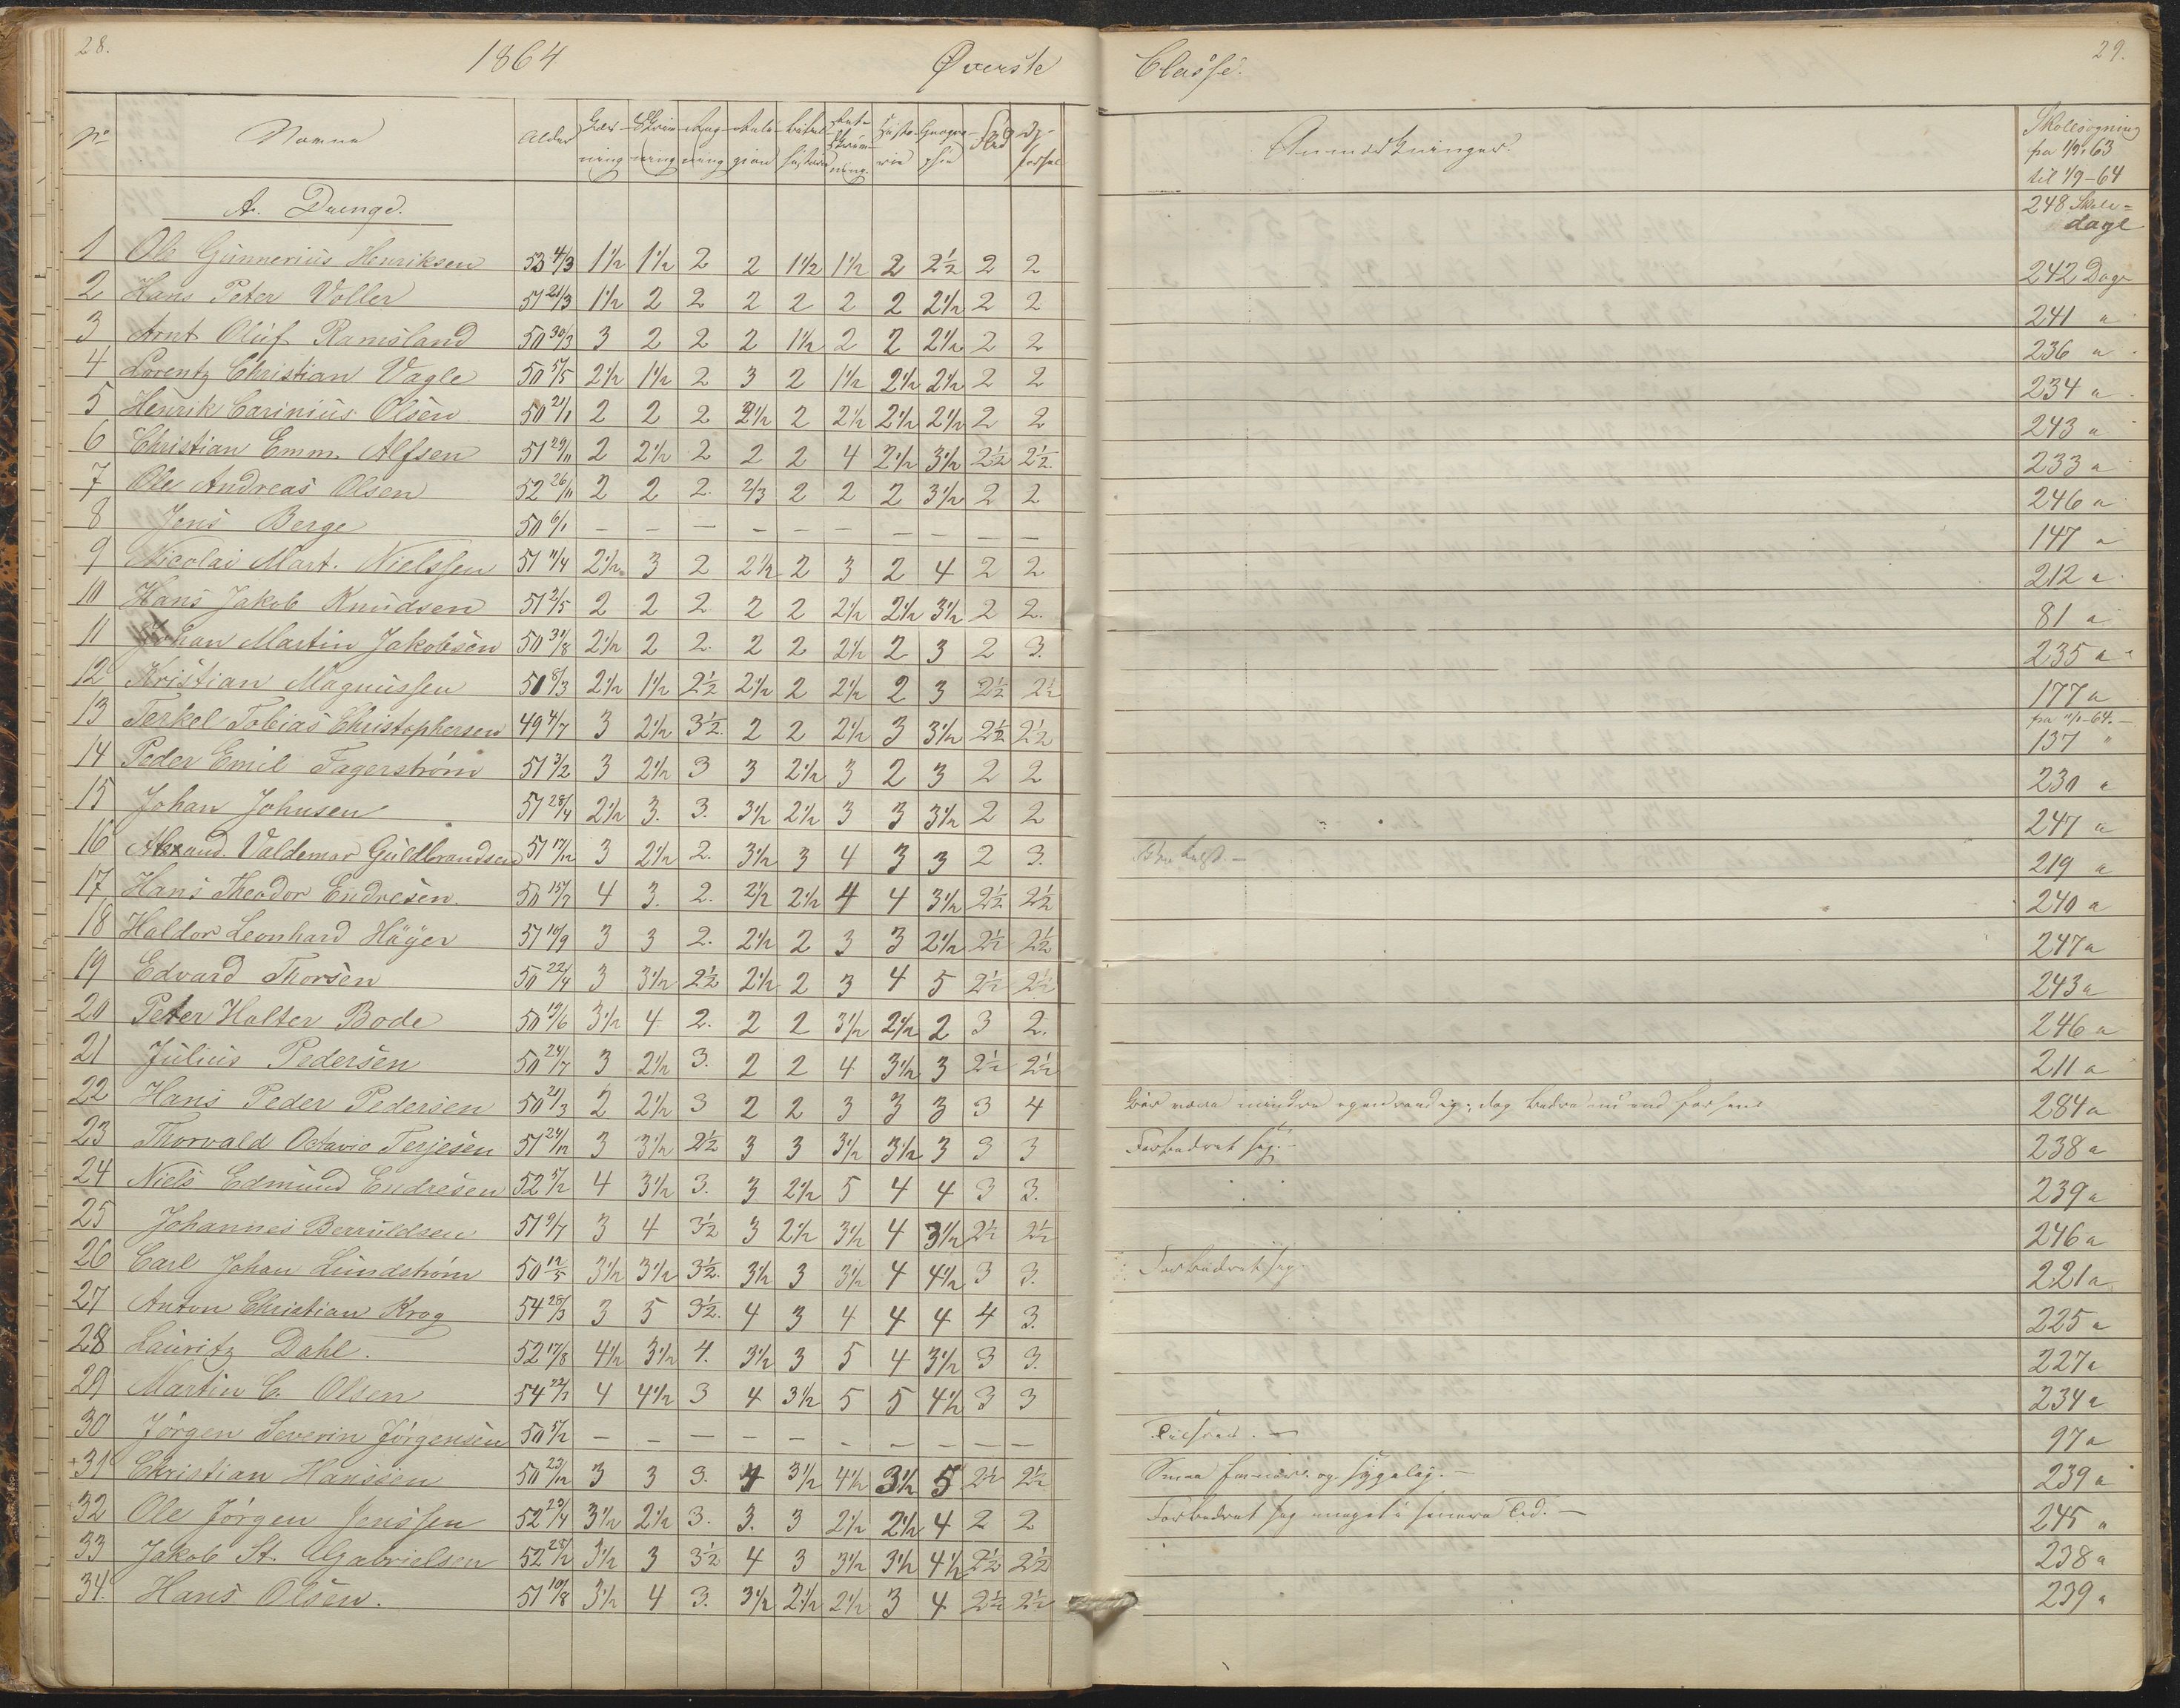 28.
1864
Øverste
Classe.
29.
No Navne Alder Læsning Skrivning Regning Religion Bibelhistorie Retskrivning Historie Geographie Flid Opførsel Anmærkninger. Skolesøgning fra 1/9 63 til 1/9-64
A. Drenge.
248 Skoledage
1 Ole Gunnerius Henriksen 53 4/3 1 1/2 1 1/2 2 2 1 1/2 1 1/2 2 2 1/2 2 2 242 Dage
2 Hans Peter Voller 51 21/3 1 1/2 2 2 2 2 2 2 2 1/2 2 2 241 "
3 Arnt Oluf Ramsland 50 30/3 3 2 2 2 1 1/2 2 2 2 1/2 2 2 236 "
4 Lorentz Christian Vagle 50 17/5 2 1/2 1 1/2 2 3 2 1 1/2 2 1/2 2 1/2 2 2 234 "
5 Henrik Carinius Olsen 50 21/1 2 2 2 2 1/2 2 2 1/2 2 1/2 2 1/2 2 2 243 "
6 Christian Emm. Alfsen 51 29/11 2 2 1/2 2 2 2 4 2 1/2 3 1/2 2 1/2 2 1/2 233 "
7 Ole Andreas Olsen 52 26/11 2 2 2. 2/3 2 2 2 3 1/2 2 2 246 "
8 Jens Berge 50 6/1 – – – – – – – – – – 147 "
9 Nicolai Mart. Nielssen 51 11/4 2 1/2 3 2 2 1/2 2 3 2 4 2 2 212 "
10 Hans Jakob Knudsen 51 2/5 2 2 2 2 2 2 1/2 2 1/2 3 1/2 2 2. 81 "
11 Johan Martin Jakobsen 50 31/8 2 1/2 2 2. 2 2 2 1/2 2 3 2 3. 235 "
12 Kristian Magnussen 50 8/3 2 1/2 1 1/2 2 1/2 2 1/2 2 2 1/2 2 3 2 1/2 2 1/2 177 "
13 Terkel Tobias Christophersen 49 4/7 3 2 1/2 3 1/2 2 2 2 1/2 3 3 1/2 2 1/2 2 1/2 fra 11/1-64. – 137 "
14 Peder Emil Fagerstrøm 51 3/2 3 2 1/2 3 3 2 1/2 3 2 3 2 2 230 "
15 Johan Johnsen 51 28/4 2 1/2 3. 3. 3 1/2 2 1/2 3 3 3 1/2 2 2 247 "
16 Alexand. Valdemar Guldbrandsen 51 17/12 3 2 1/2 2. 3 1/2 3 4 3 3 2 3. 219 "
17 Hans Theodor Endresen. 50 15/7 4 3. 2. 2 1/2 2 1/2 4 4 3 1/2 2 1/2 2 1/2 240 "
18 Haldor Leonhard Höyer 51 10/9 3 3 2. 2 1/2 2 3 3 2 1/2 2 1/2 2 1/2 247 "
19 Edvard Thorsen 50 22/4 3 3 1/2 2 1/2 2 1/2 2 3 4 5 2 1/2 2 1/2 243 "
20 Peter Holter Bode 50 19/6 3 1/2 4 2. 2 2 3 1/2 2 1/2 2 3 2. 246 "
21 Julius Pedersen 50 24/7 3 2 1/2 3. 2 2 4 3 1/2 3 2 1/2 2 1/2 211 "
22 Hans Peder Pedersen 50 21/3 2 2 1/2 3 2 2 3 3 3 3 4 Bör være mindre egenraadig; dog bedre nu end forhen 284 "
23 Thorvald Octavio Terjesen 51 24/12 3 3 1/2 2 1/2 3 3 3 1/2 3 1/2 3 3 3 Forbedret sig. – 238 "
24 Niels Edmund Endresen 52 5/12 4 3 1/2 3. 3 2 1/2 5 4 4 3 3. 239 "
25 Johannes Berruldsen 51 9/7 3 4 3 1/2 3 2 1/2 3 1/2 4 3 1/2 2 1/2 2 1/2 246 "
26 Carl Johan Lundstrøm 50 12/5 3 1/2 3 1/2 3 1/2. 3 1/2 3 3 1/2 4 4 1/2 3 3. Forbedret sig. 221 "
27 Anton Christian Krog 54 28/3 3 5 3 1/2. 4 3 4 4 4 4 3. 225 "
28 Lauritz Dahl. 52 17/8 4 1/2 3 1/2 4. 3 1/2 3 5 4 3 1/2 3 3. 227 "
29 Martin C. Olsen 54 22/1 4 4 1/2 3 4 3 1/2 5 5 4 1/2 3 3 234 "
30 Jörgen Severin Jörgensen 50 5/12 – – – – – – – – – – 97 "
+31 Christian Hanssen 50 23/12 3 3 3. 4 3 1/2 4 1/2 3 1/2 5 2 1/2 2 1/2 Smaa og sygelig. – 239 "
32 Ole Jörgen Jenssen 52 29/4 3 1/2 2 1/2 3. 3. 3 2 1/2 2 1/2 4 2 2 Forbedret sig meget i senere Tid. – 245 "
33 Jakob St. Gabrielsen 52 28/12 3 1/2 3 3 1/2 4 3 3 1/2 3 1/2 4 1/2 2 1/2 2 1/2 238 "
34. Hans Olsen. 51 10/8 3 1/2 4 3. 3 1/2 2 1/2 2 1/2 3 4 2 1/2 2 1/2 239 "